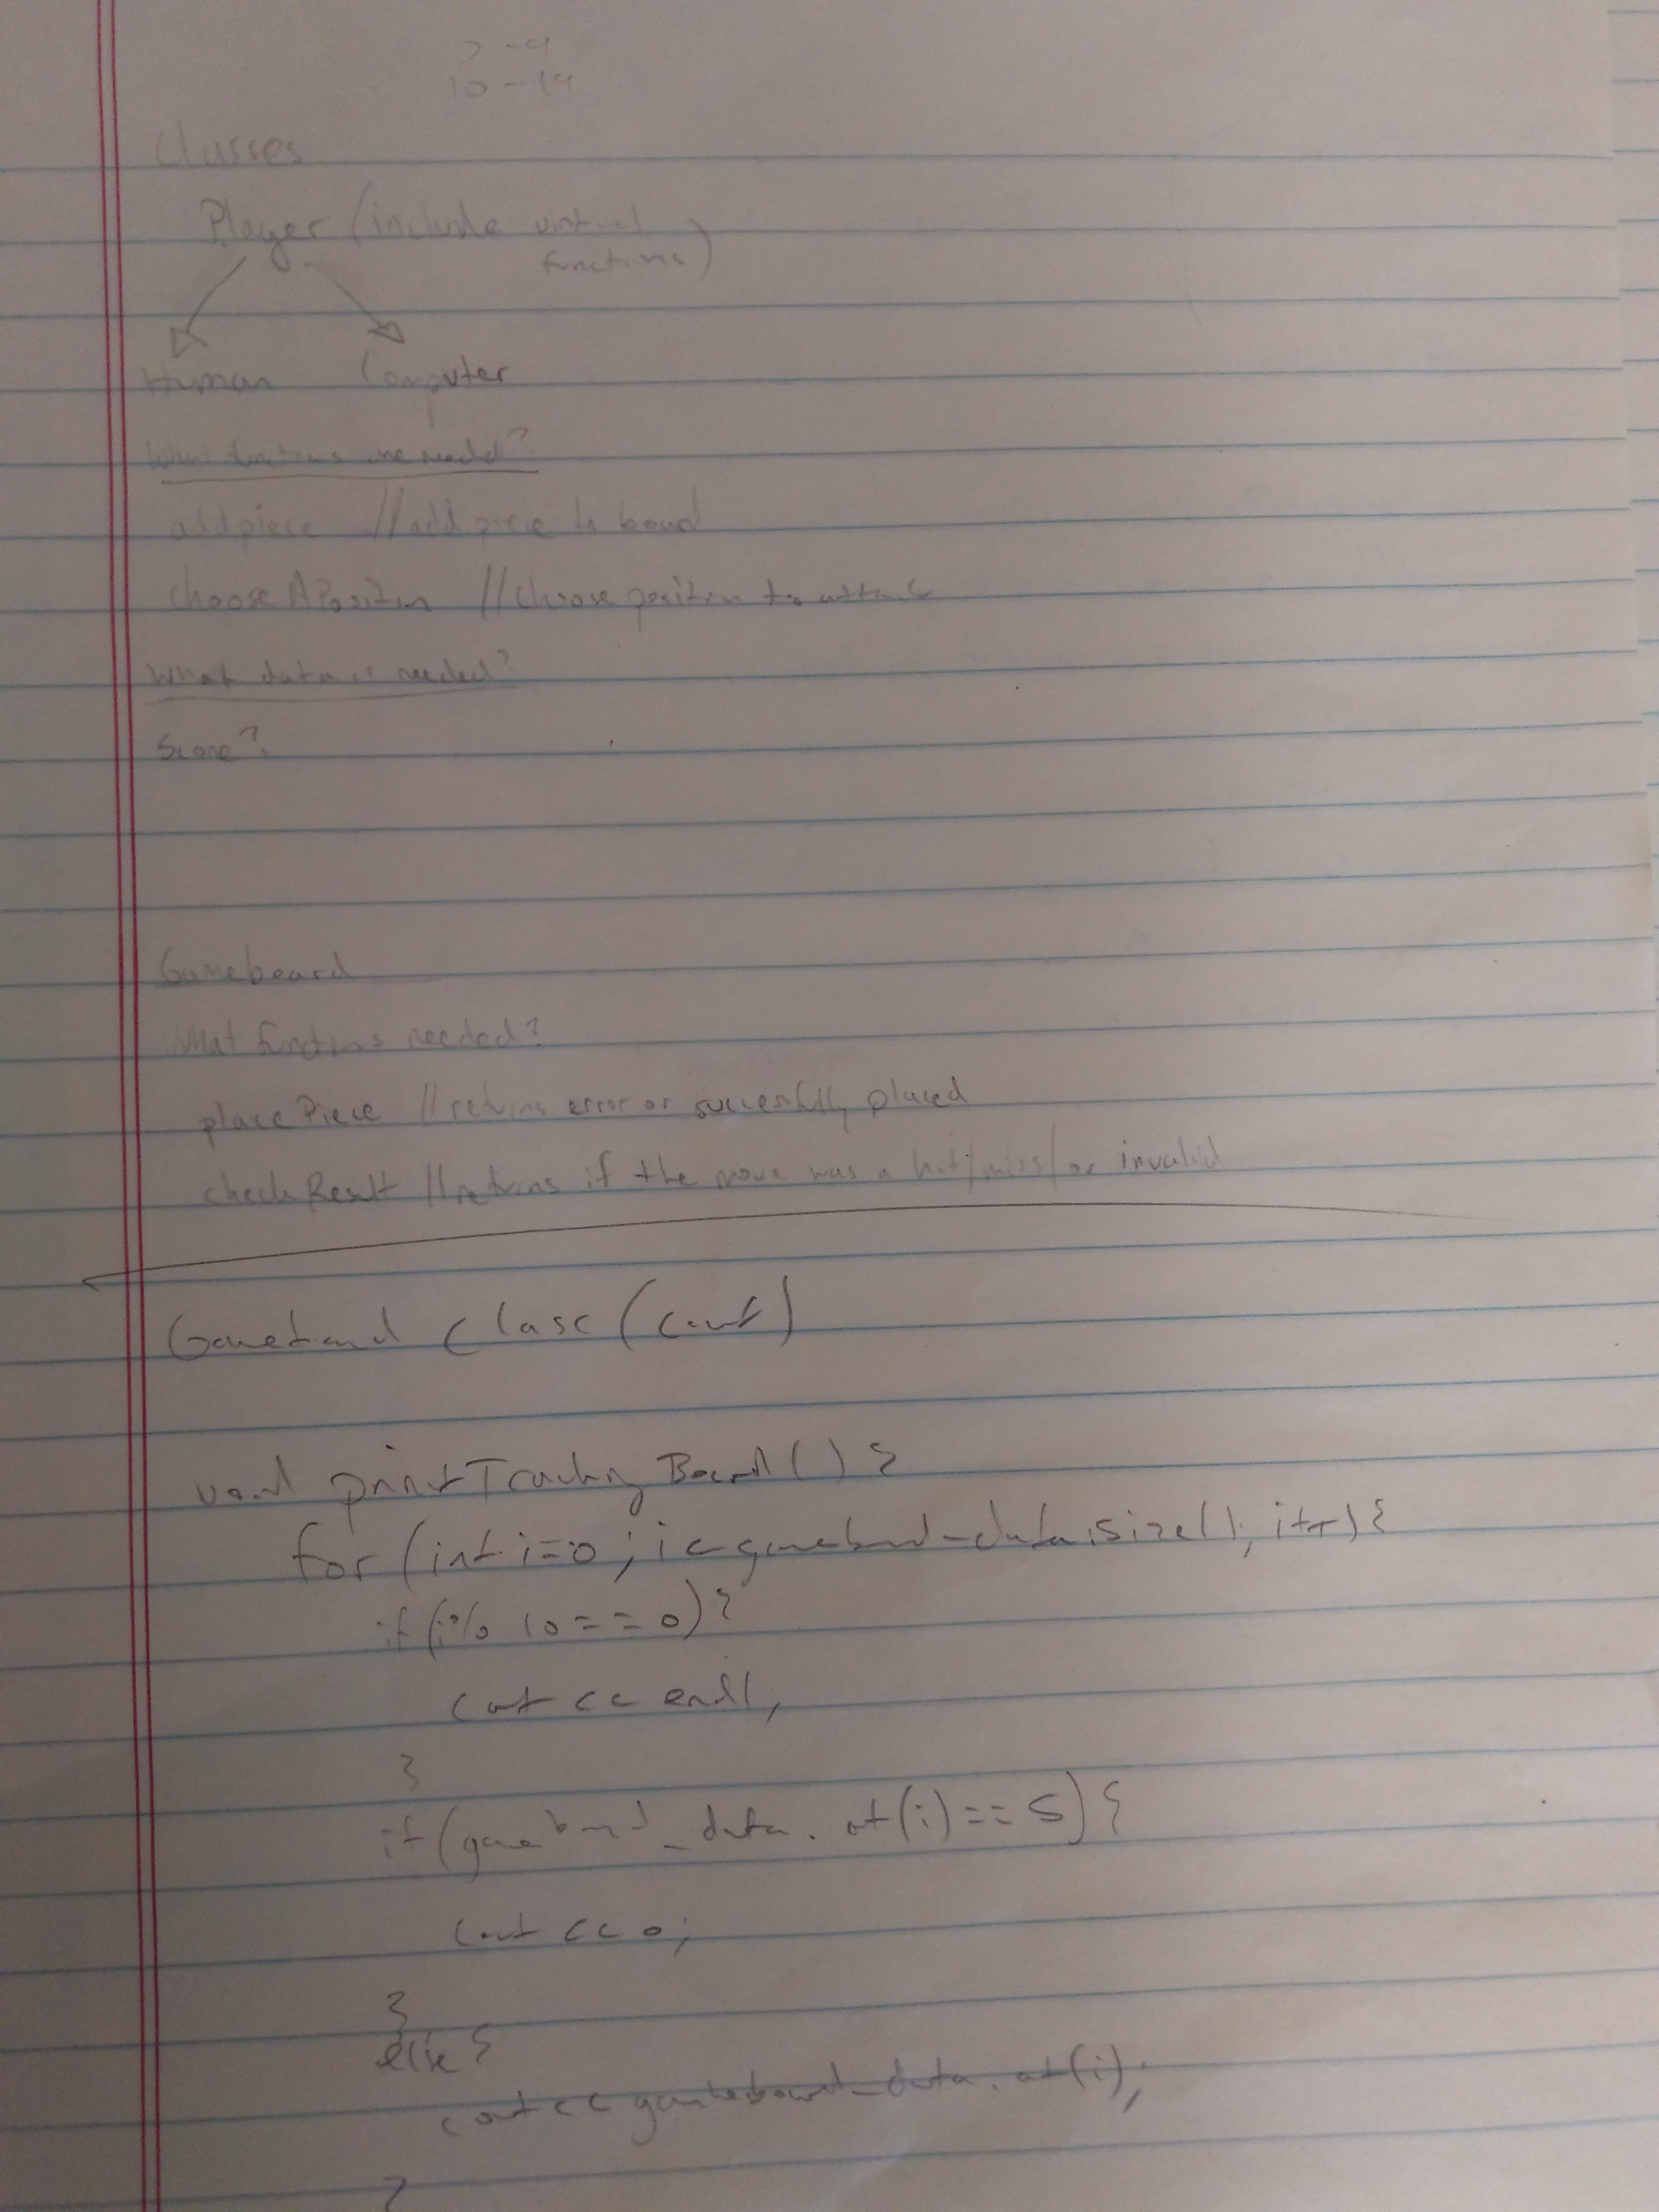 10-19
Classes
Player (include virtual
functions)
Human Computer
What functions are needed?
addpiece //add piece to board
chooseAPosition //choose position to attack
What data is needed?
Score?
Gameboard
What functions needed?
placePiece //returns error or successfully placed
checkResult //returns if the move was a hit/miss/or invalid
Gameboard class (cont)
void printTrackingBoard() {
for (int i=0; i<gameboard_data.size(); i++) {
if (i% 10 == 0) {
cout << endl;
}
if (gameboard_data.at(i) == S) {
cout << 0;
}
else {
cout << gameboard_data.at(i);
}